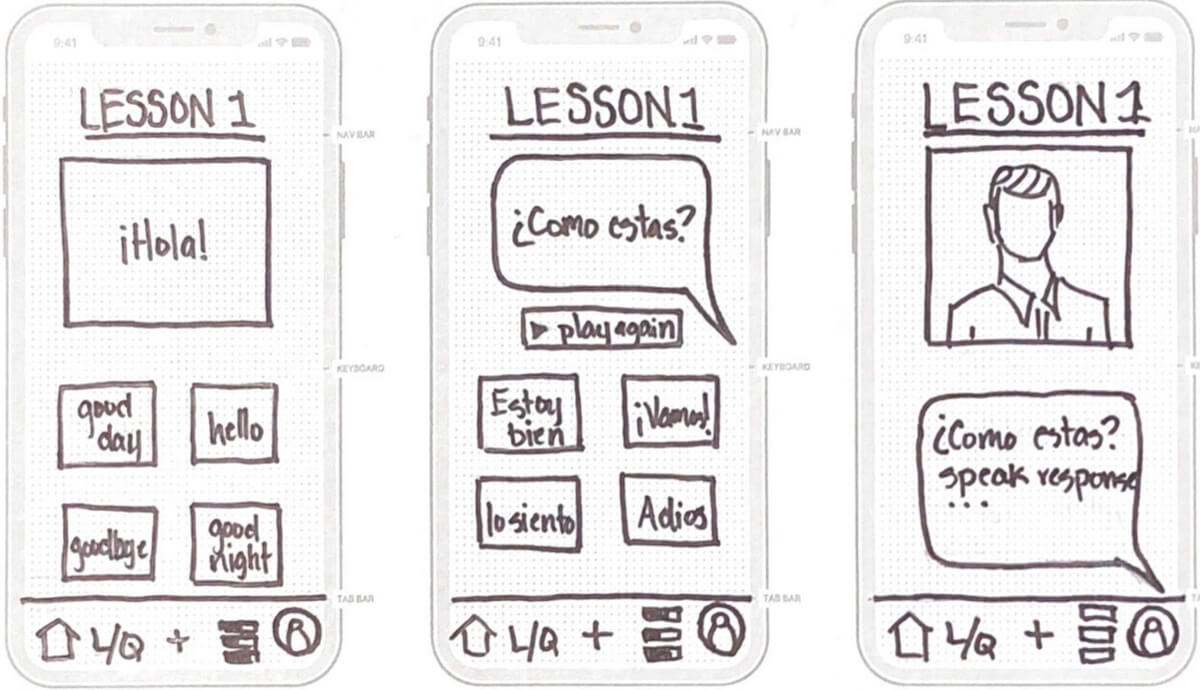 9:41
LESSON 1
NAV BAR
¡Hola!
KEYBOARD
good
day
hello
goodbye
good
night
TAB BAR
L/Q +
9:41
LESSON 1
NAV BAR
¿Como estas?
▶ play again
KEYBOARD
Estoy
bien
¡Vamos!
lo siento
Adios
TAB BAR
L/Q +
9:41
LESSON 1
¿Como estas?
speak response
...
L/Q +